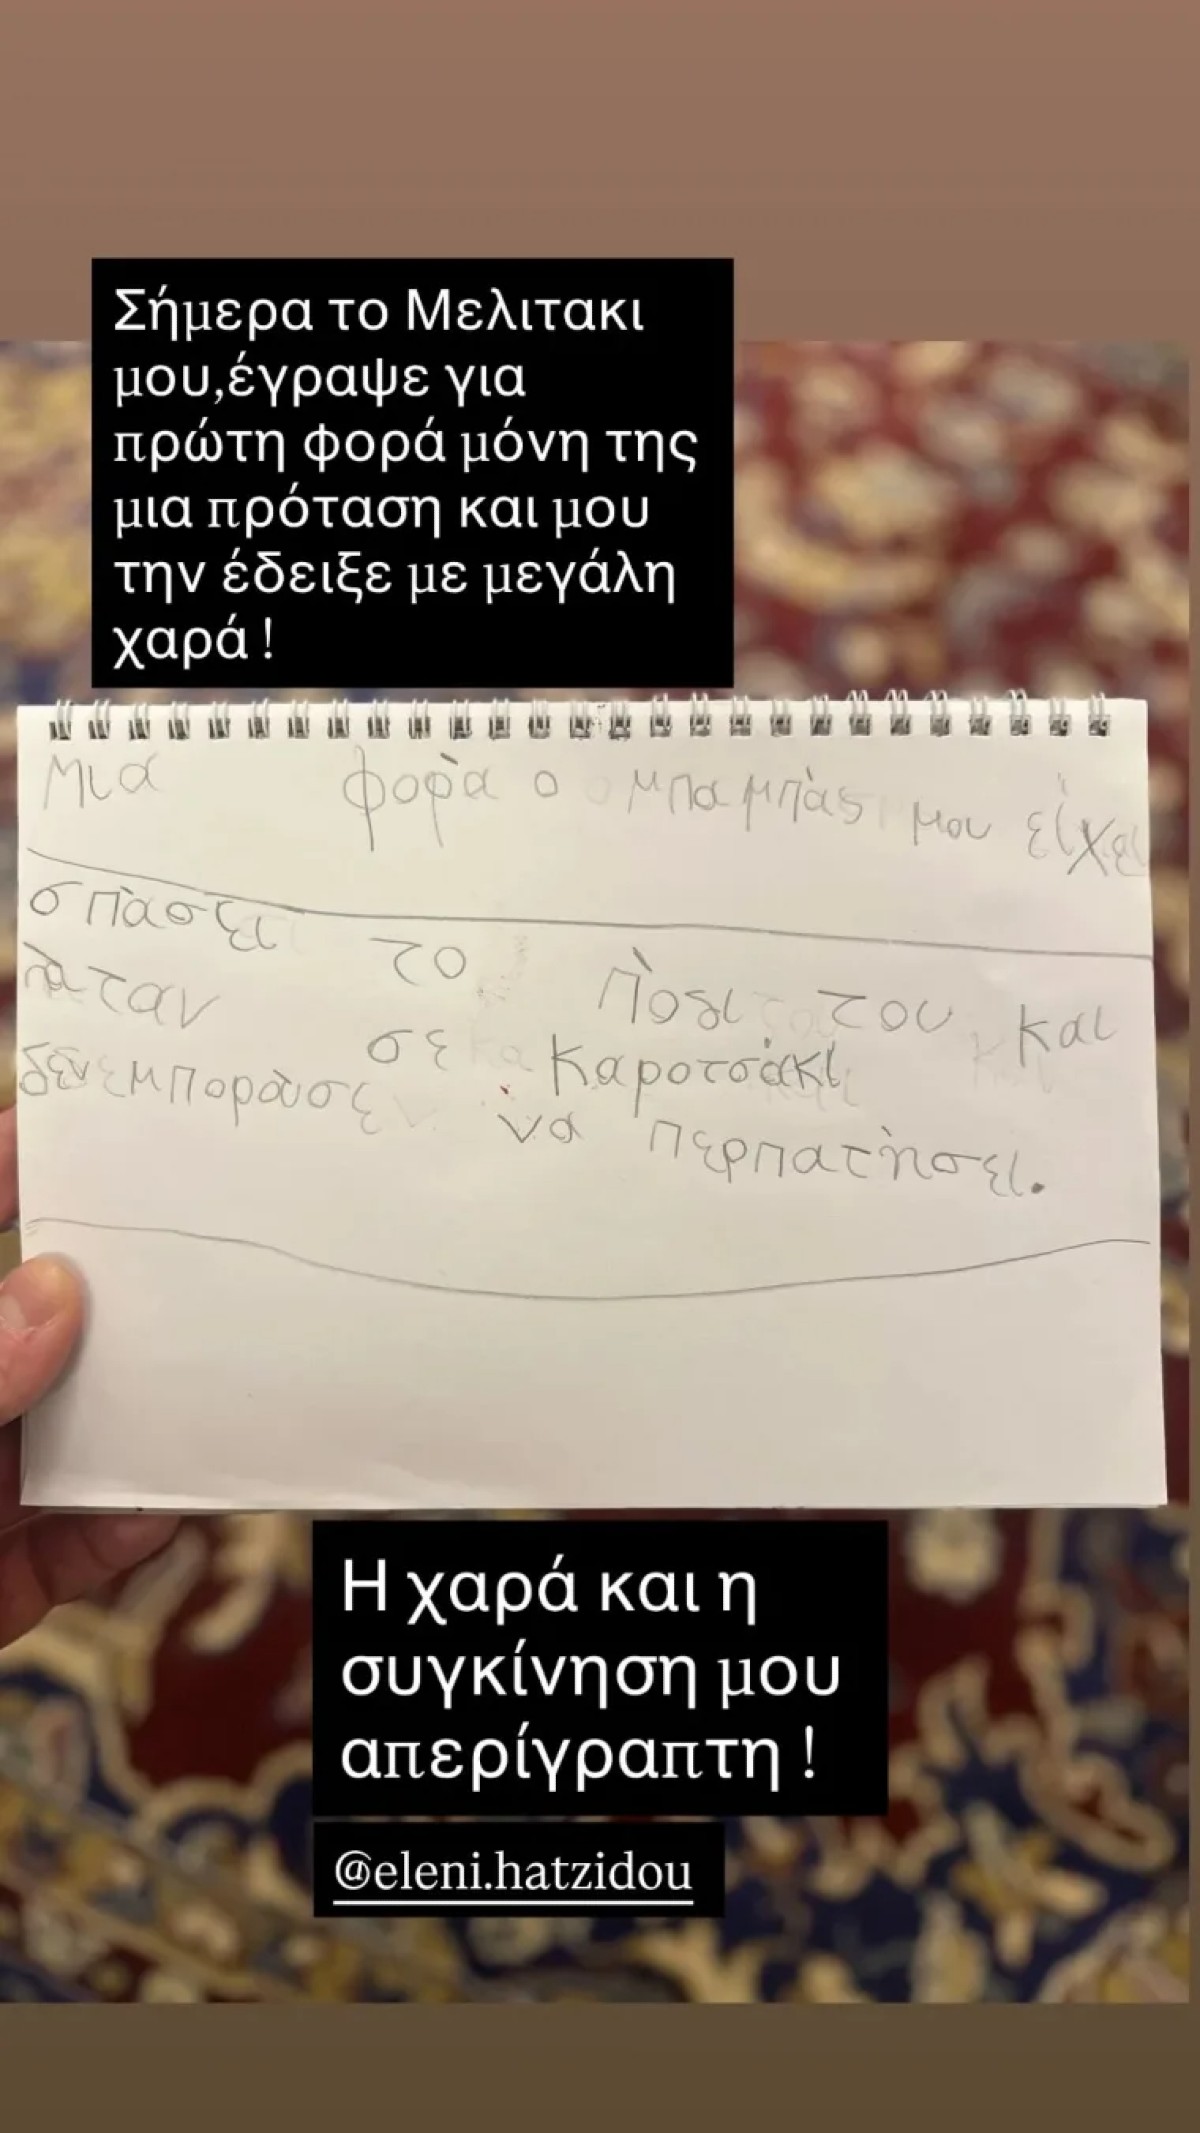 Σήμερα το Μελιτακι
μου,έγραψε για
πρώτη φορά μόνη της
μια πρόταση και μου
την έδειξε με μεγάλη
χαρά !
μια φορὰ ο μπαμπὰς μου είχε
σπὰσει το πὸδι του και
ὴταν σε καροτσὰκι
δεν μπορὰσε να περπατὴσει.
Η χαρά και η
συγκίνηση μου
απερίγραπτη !
@eleni.hatzidou